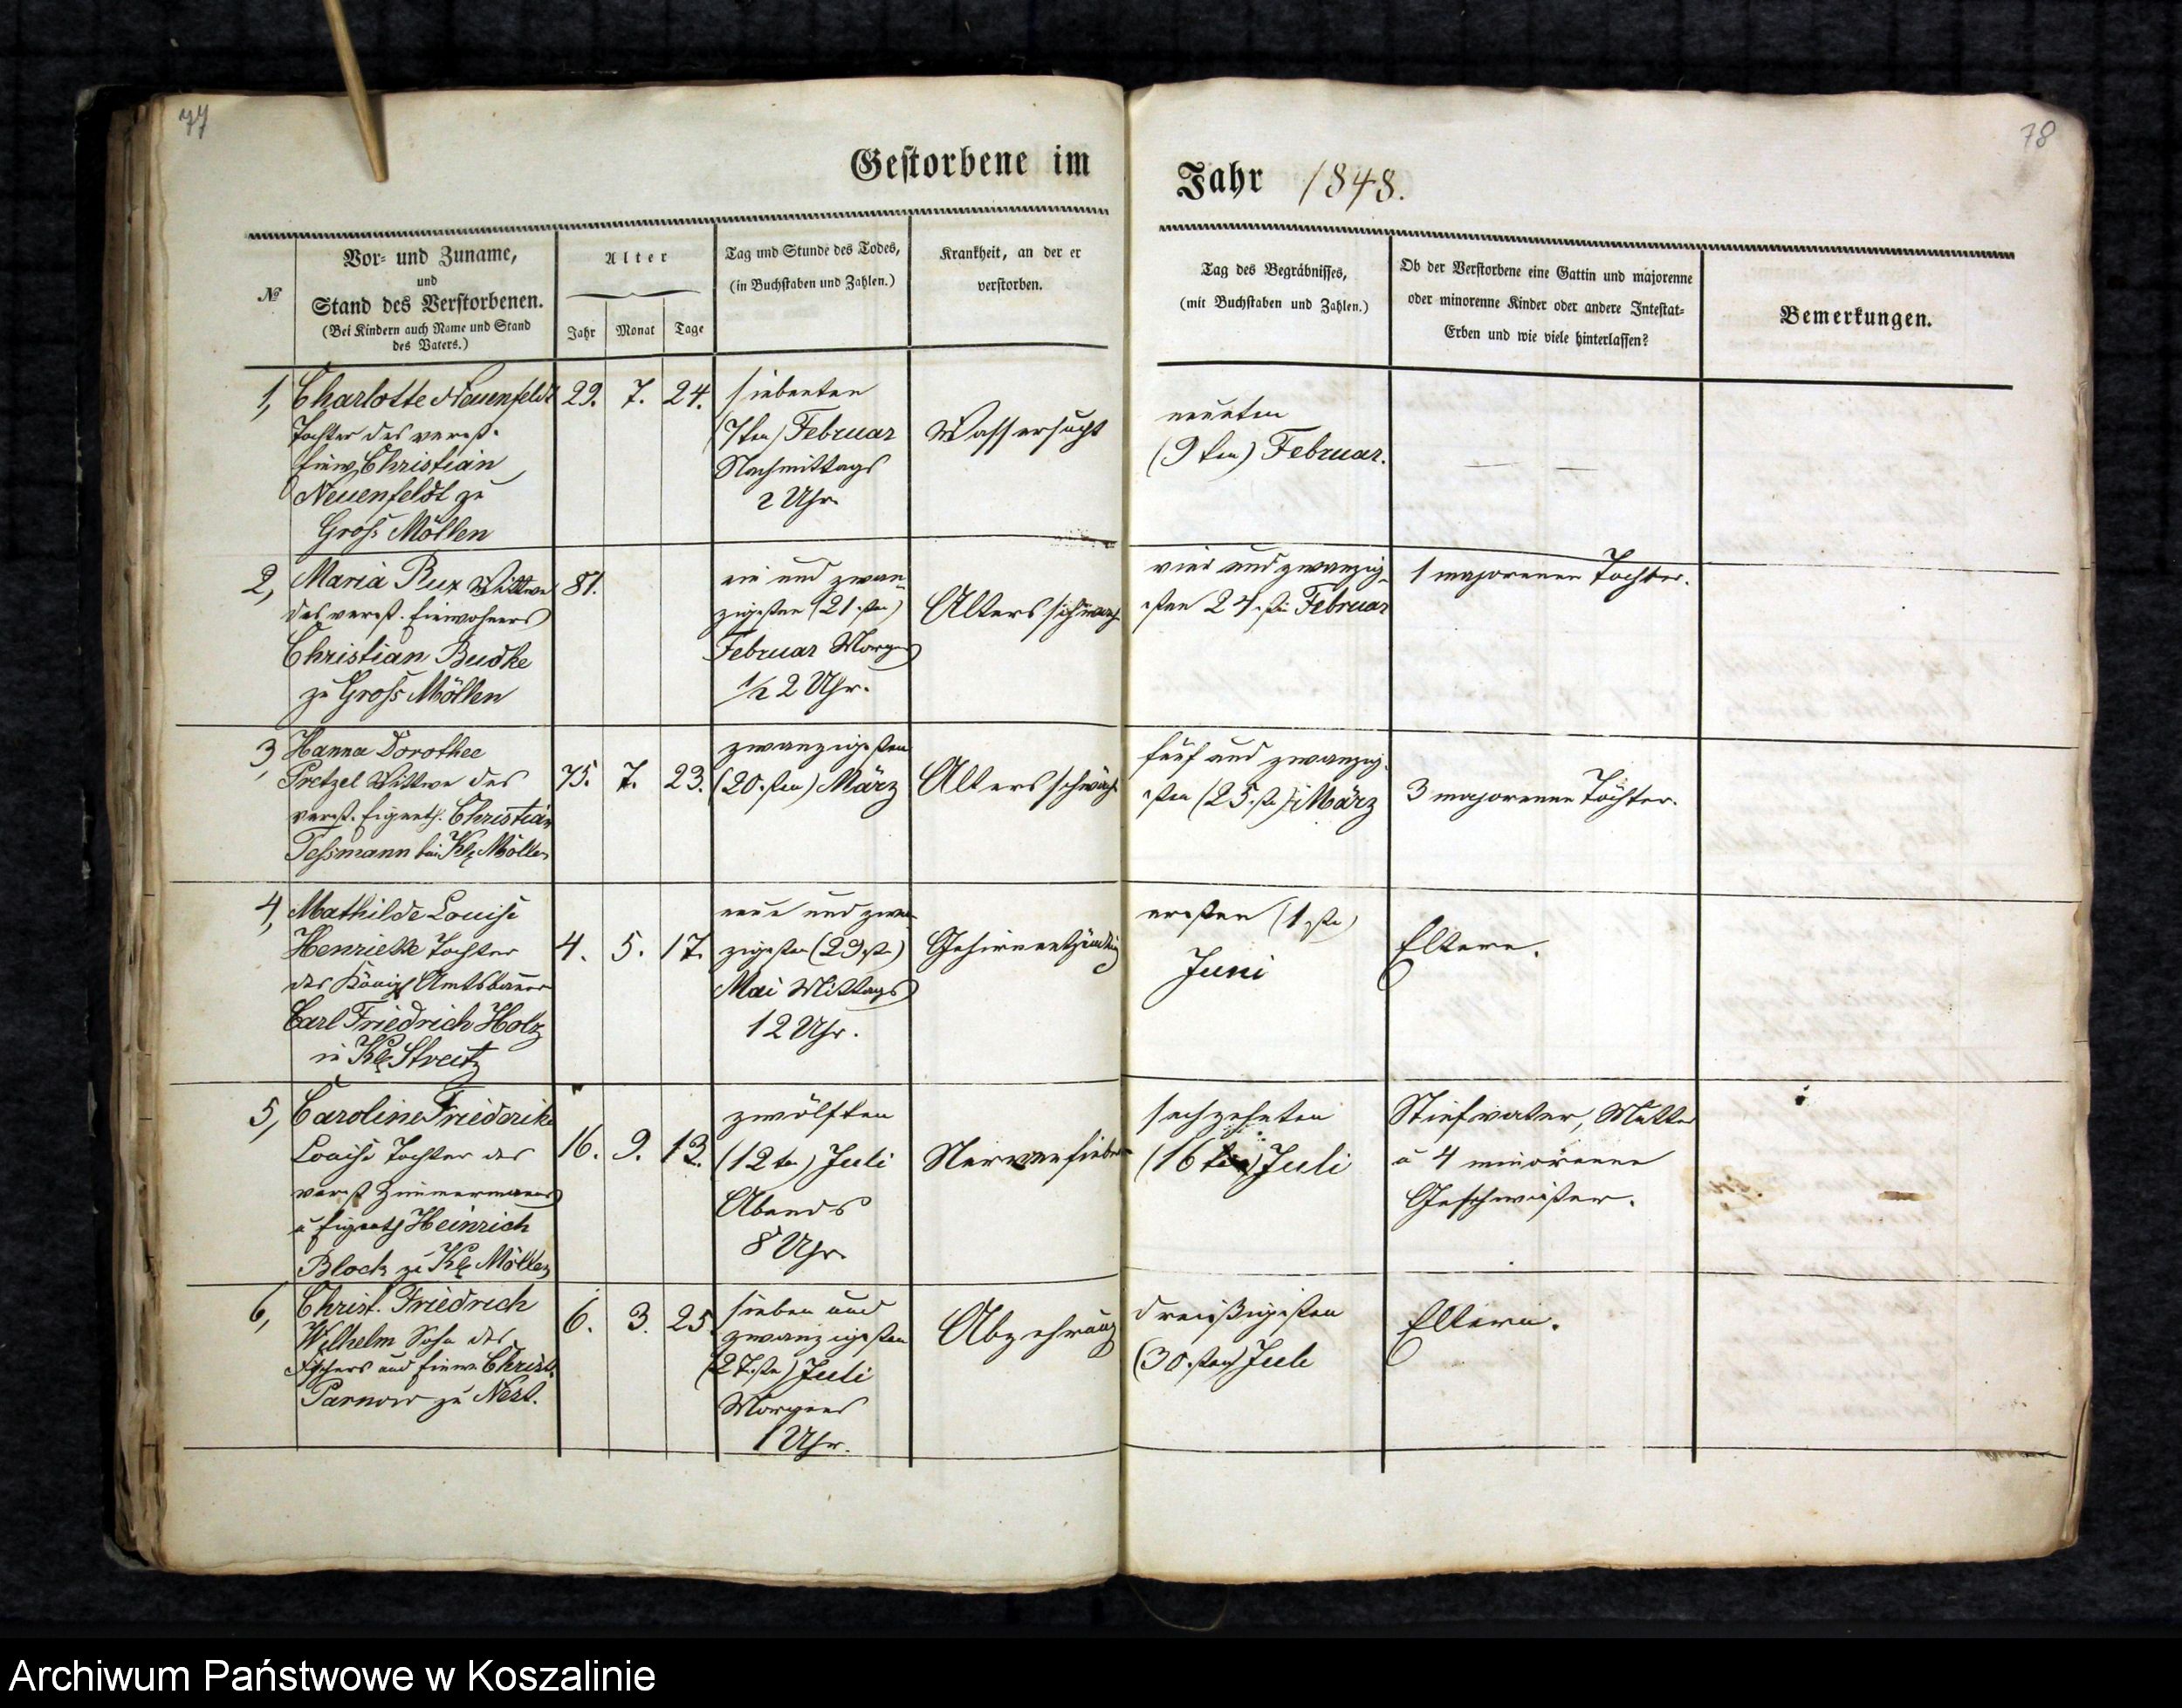 77
78
Gestorbene im
Jahr 1848.
№
Vor- und Zuname,
und
Stand des Verstorbenen.
(Bei Kindern auch Name und Stand
des Vaters.)
Alter
Jahr Monat Tage
Tag und Stunde des Todes,
(in Buchstaben und Zahlen.)
Krankheit, an der er
verstorben.
Tag des Begräbnisses,
(mit Buchstaben und Zahlen.)
Ob der Verstorbene eine Gattin und majorenne
oder minorenne Kinder oder andere Intestat-
Erben und wie viele hinterlassen?
Bemerkungen.
1, Charlotte Neuenfeldt
Tochter des verst.
Einw. Christian
Neuenfeldt zu
Gross Möllen
29. 7. 24.
siebenten
(7ten) Februar
Nachmittags
2 Uhr.
Wassersucht
neunten
(9ten) Februar.
— —
2, Maria Rux Wittwe
des verst. Einwohners
Christian Budke
zu Gross Möllen
81.
ein und zwan-
zigsten (21sten)
Februar Morgens
1/2 2 Uhr.
Altersschwäche
vier und zwanzig-
sten 24sten Februar
1 majorenne Tochter.
3, Hanna Dorothee
Pretzel Wittwe des
verst. Eigenth. Christian
Tessmann bei Kl. Möllen
75. 7. 23.
zwanzigsten
(20.sten) März
Altersschwäche
fünf und zwanzig-
sten (25.sten) März
3 majorenne Töchter.
4, Mathilde Louise
Henriette Tochter
des Königl Amtsbauer
Carl Friedrich Holz
in Kl. Streitz
4. 5. 17.
neun und zwan-
zigsten (29sten)
Mai Mittags
12 Uhr.
Gehirnentzündung
ersten (1sten)
Juni
Eltern.
5, Caroline Friederike
Louise Tochter des
verst Zimmermanns
u Eigenth Heinrich
Block zu Kl. Möllen
16. 9. 13.
zwölften
(12ten) Juli
Abends
8 Uhr
Nervenfieber
sechzehnten
(16ten) Juli
Stiefvater, Mutter
u 4 minorenne
Geschwister.
6, Christ. Friedrich
Wilhelm Sohn des
Fischers und Einw. Christ.
Parnow zu Nest.
6. 3. 25.
sieben und
zwanzigsten
(27.sten) Juli
Morgens
1 Uhr.
Abzehrung
dreissigsten
(30.sten) Juli
Eltern.
Archiwum Państwowe w Koszalinie